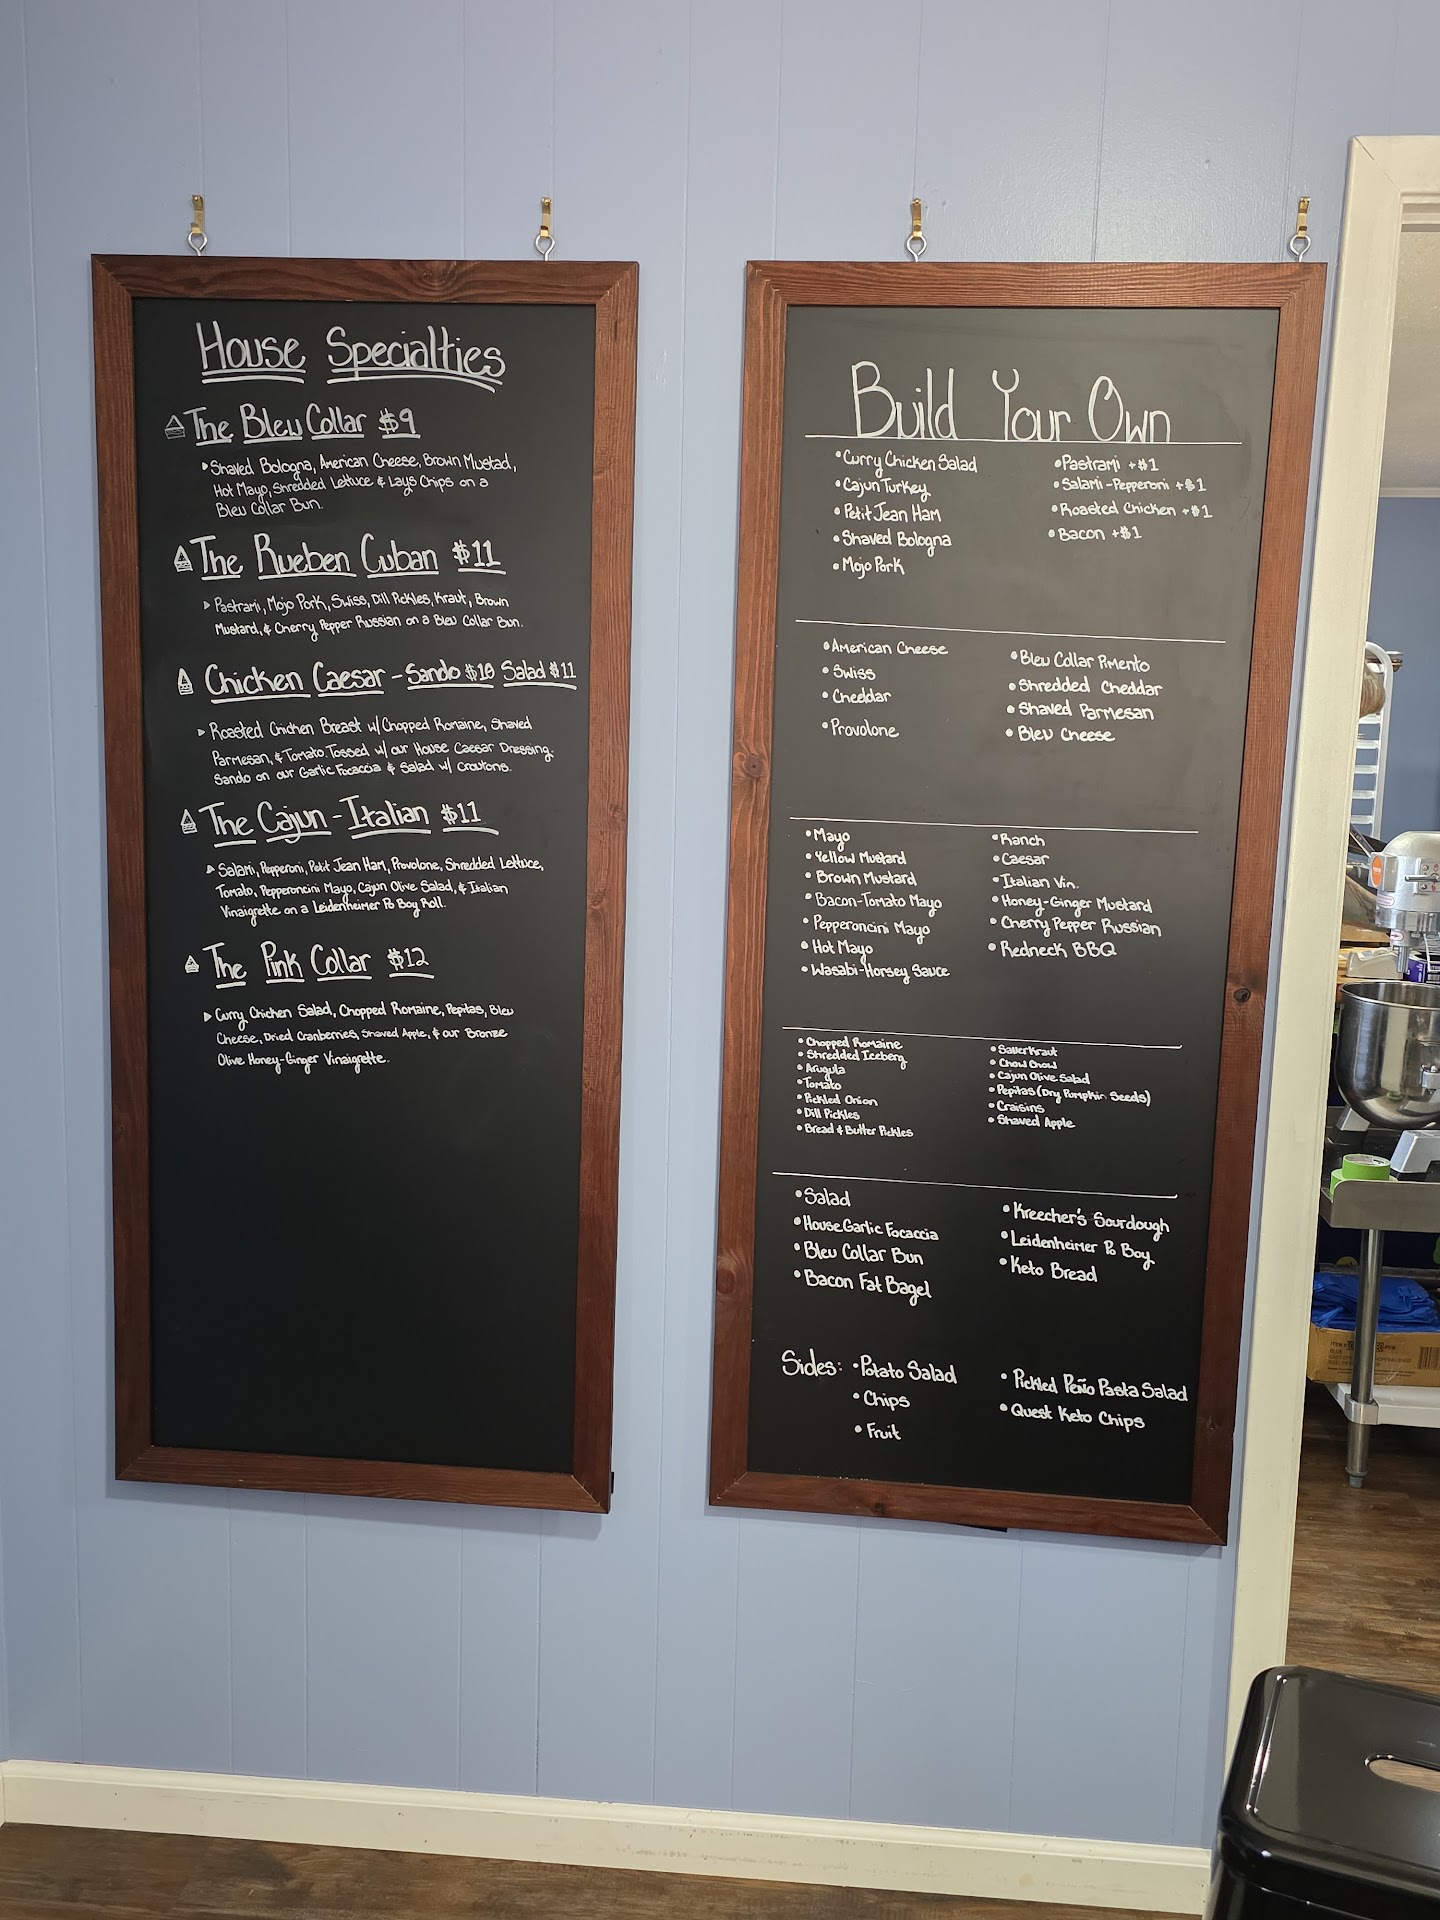 House Specialties
The Bleu Collar $9
Shaved Bologna, American Cheese, Brown Mustad,
Hot Mayo, Shredded Lettuce & Lays Chips on a
Bleu Collar Bun.
The Rueben Cuban $11
Pastrami, Mojo Pork, Swiss, Dill Pickles, Kraut, Brown
Mustard, & Cherry Pepper Russian on a Bleu Collar Bun.
Chicken Caesar - Sando $10 Salad $11
Roasted Chicken Breast w/ Chopped Romaine, Shaved
Parmesan, & Tomato Tossed w/ our House Caesar Dressing.
Sando on our Garlic Focaccia & Salad w/ Croutons.
The Cajun - Italian $11
Salami, Pepperoni, Petit Jean Ham, Provolone, Shredded Lettuce,
Tomato, Pepperoncini Mayo, Cajun Olive Salad, & Italian
Vinaigrette on a Leidenheimer Po Boy Roll.
The Pink Collar $12
Curry Chicken Salad, Chopped Romaine, Pepitas, Bleu
Cheese, Dried Cranberries, Shaved Apple, & our Bronze
Olive Honey-Ginger Vinaigrette.
Build Your Own
• Curry Chicken Salad
• Cajun Turkey
• Petit Jean Ham
• Shaved Bologna
• Mojo Pork
• Pastrami +$1
• Salami-Pepperoni +$1
• Roasted Chicken +$1
• Bacon +$1
• American Cheese
• Swiss
• Cheddar
• Provolone
• Bleu Collar Pimento
• Shredded Cheddar
• Shaved Parmesan
• Bleu Cheese
• Mayo
• Yellow Mustard
• Brown Mustard
• Bacon-Tomato Mayo
• Pepperoncini Mayo
• Hot Mayo
• Wasabi-Horsey Sauce
• Ranch
• Caesar
• Italian Vin.
• Honey-Ginger Mustard
• Cherry Pepper Russian
• Redneck BBQ
• Chopped Romaine
• Shredded Iceberg
• Arugula
• Tomato
• Pickled Onion
• Dill Pickles
• Bread & Butter Pickles
• Sauerkraut
• Chow Chow
• Cajun Olive Salad
• Pepitas (Dry Pumpkin Seeds)
• Craisins
• Shaved Apple
• Salad
• House Garlic Focaccia
• Bleu Collar Bun
• Bacon Fat Bagel
• Kreecher's Sourdough
• Leidenheimer Po Boy
• Keto Bread
Sides: • Potato Salad
• Chips
• Fruit
• Pickled Peño Pasta Salad
• Quest Keto Chips